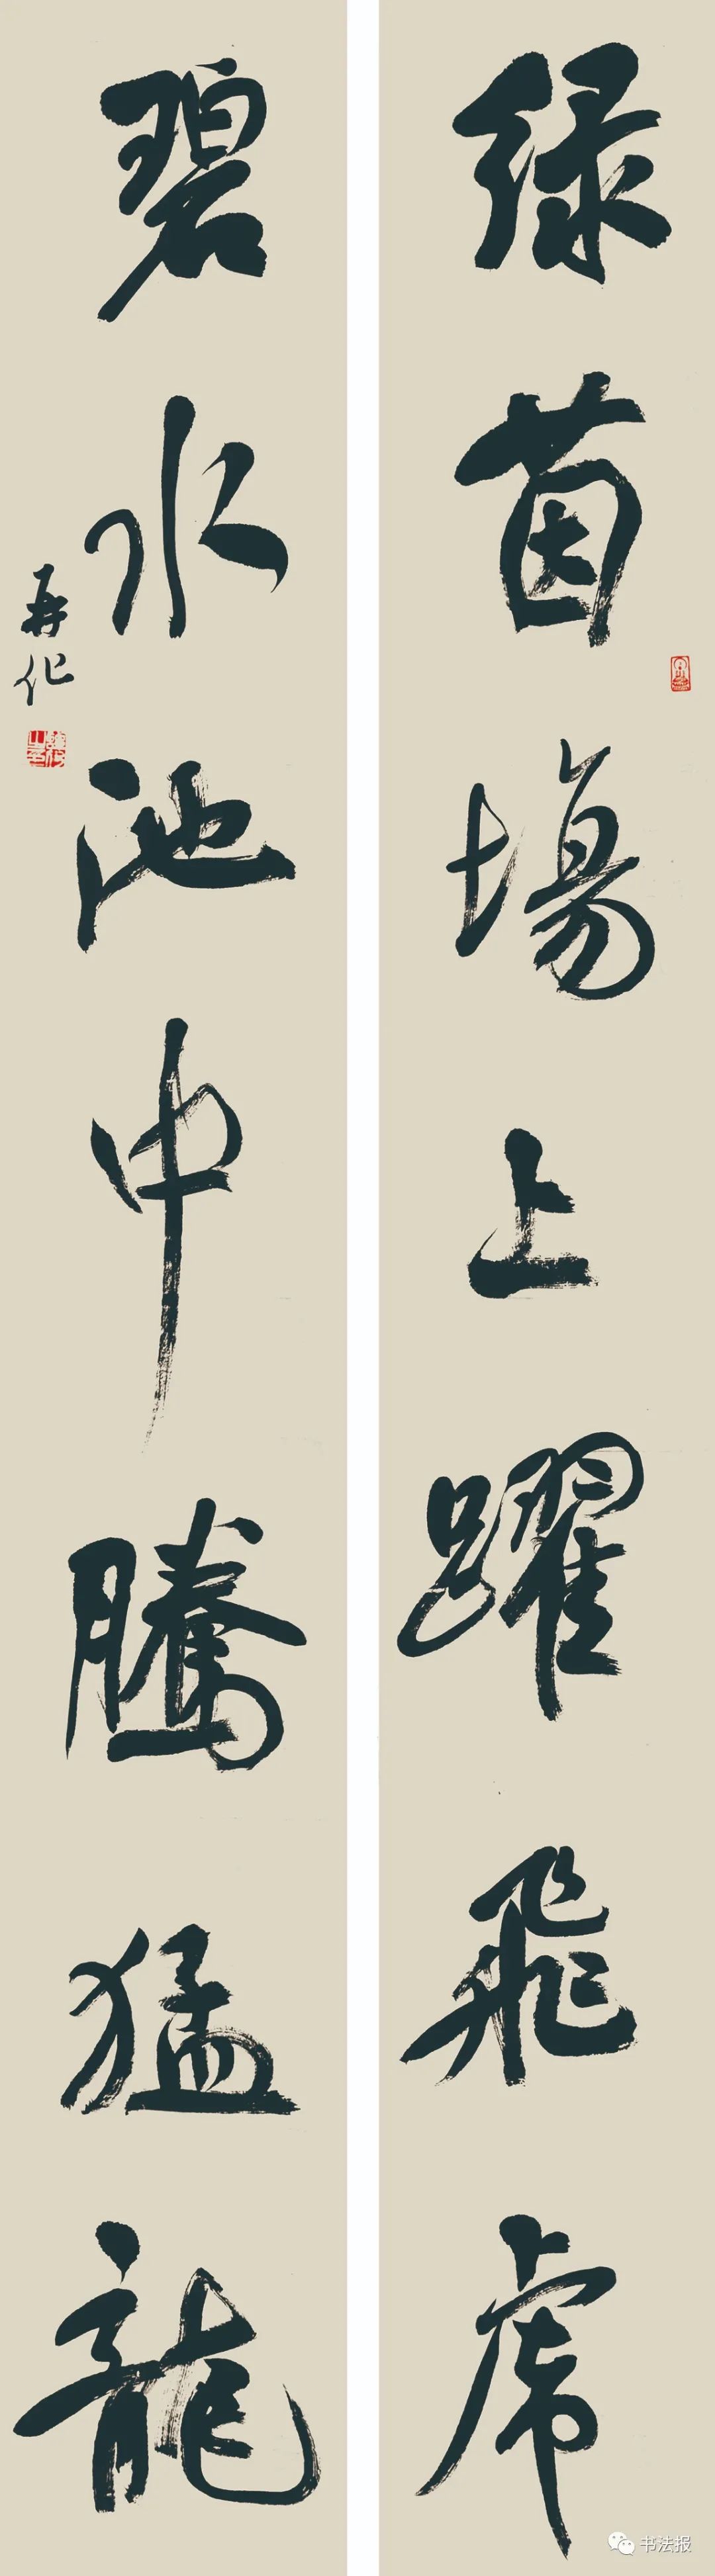 绿茵場上躍飛虎
碧水池中騰猛龍
再化
书法报